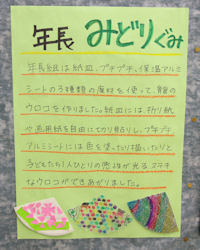 年長 みどりぐみ
年長組は紙皿、プチプチ、保温アルミ
シートの3種類の廃材を使って、
ウロコを作りました。紙皿には、折り紙
や画用紙を自由に切り貼りし、プチプチ、
アルミシートには色を塗ったり描いたりと
子どもたち1人ひとりの感性が光るステキ
なウロコができあがりました。